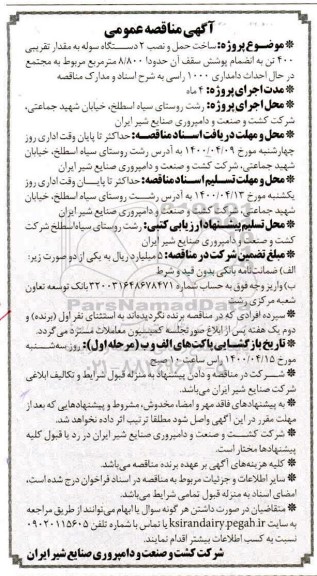 آگهی مناقصه عمومی
* موضوع پروژه: ساخت حمل و نصب ۲ دستگاه سوله به مقدار تقریبی
۴۰۰ تن به انضمام پوشش سقف آن حدودا ۸/۸۰۰ مترمربع مربوط به مجتمع
در حال احداث دامداری ۱۰۰۰ راسی به شرح اسناد و مدارک مناقصه
* مدت اجرای پروژه: ۴ ماه
* محل اجرای پروژه: رشت روستای سیاه اسطلخ، خیابان شهید جماعتی،
شرکت کشت و صنعت و دامپروری صنایع شیر ایران
* محل و مهلت دریافت اسناد مناقصه: حداکثر تا پایان وقت اداری روز
چهارشنبه مورخ ۱۴۰۰/۰۴/۰۹ به آدرس رشت روستای سیاه اسطلخ، خیابان
شهید جماعتی، شرکت کشت و صنعت و دامپروری صنایع شیر ایران
* محل و مهلت تسلیم اسناد مناقصه: حداکثر تا پایان وقت اداری روز
یکشنبه مورخ ۱۴۰۰/۰۴/۱۳ به آدرس رشت روستای سیاه اسطلخ، خیابان
شهید جماعتی، شرکت کشت و صنعت و دامپروری صنایع شیر ایران
* محل تسلیم پیشنهاد ارزیابی کتبی: رشت، روستای سیاه‌اسطلخ شرکت
کشت و صنعت و دامپروری صنایع شیر ایران
* مبلغ تضمین شرکت در مناقصه: ۵ میلیارد ریال به یکی از دو صورت زیر:
الف) ضمانت‌نامه بانکی بدون قید و شرط
ب) واریز وجه فوق به حساب شماره ۳۲۰۰۳۱۶۴۸۶۷۸۴۷۱ بانک توسعه تعاون
شعبه مرکزی رشت
* سپرده افرادی که در مناقصه برنده نگردیده‌اند به استثنای نفر اول (برنده) و
دوم یک هفته پس از ابلاغ صورتجلسه کمیسیون معاملات مسترد می‌گردد.
* تاریخ بازگشایی پاکت‌های الف و ب (مرحله اول): روز سه‌شنبه
مورخ ۱۴۰۰/۰۴/۱۵ راس ساعت ۱۰ صبح
* شرکت در مناقصه و دادن پیشنهاد به منزله قبول شرایط و تکالیف ابلاغی
شرکت صنایع شیر ایران می‌باشد.
* به پیشنهادهای فاقد مهر و امضا، مخدوش، مشروط و پیشنهادهایی که بعد از
مهلت مقرر در این آگهی واصل شود مطلقا ترتیب اثر داده نخواهد شد.
* شرکت کشت و صنعت و دامپروری صنایع شیر ایران در رد یا قبول کلیه
پیشنهادها مختار است.
* کلیه هزینه‌های آگهی بر عهده برنده مناقصه می‌باشد.
* سایر اطلاعات و جزئیات مربوط به مناقصه در اسناد فراخوان درج شده است،
امضای اسناد به منزله قبول تمامی شرایط می‌باشد.
* متقاضیان در صورت داشتن هر گونه سوال یا ابهام می‌توانند از طریق مراجعه
به سایت ksirandairy.pegah.ir یا تماس با شماره تلفن ۰۹۰۲۰۱۱۵۶۰۵
نسبت به کسب اطلاعات بیشتر اقدام نمایند.
شرکت کشت و صنعت و دامپروری صنایع شیر ایران